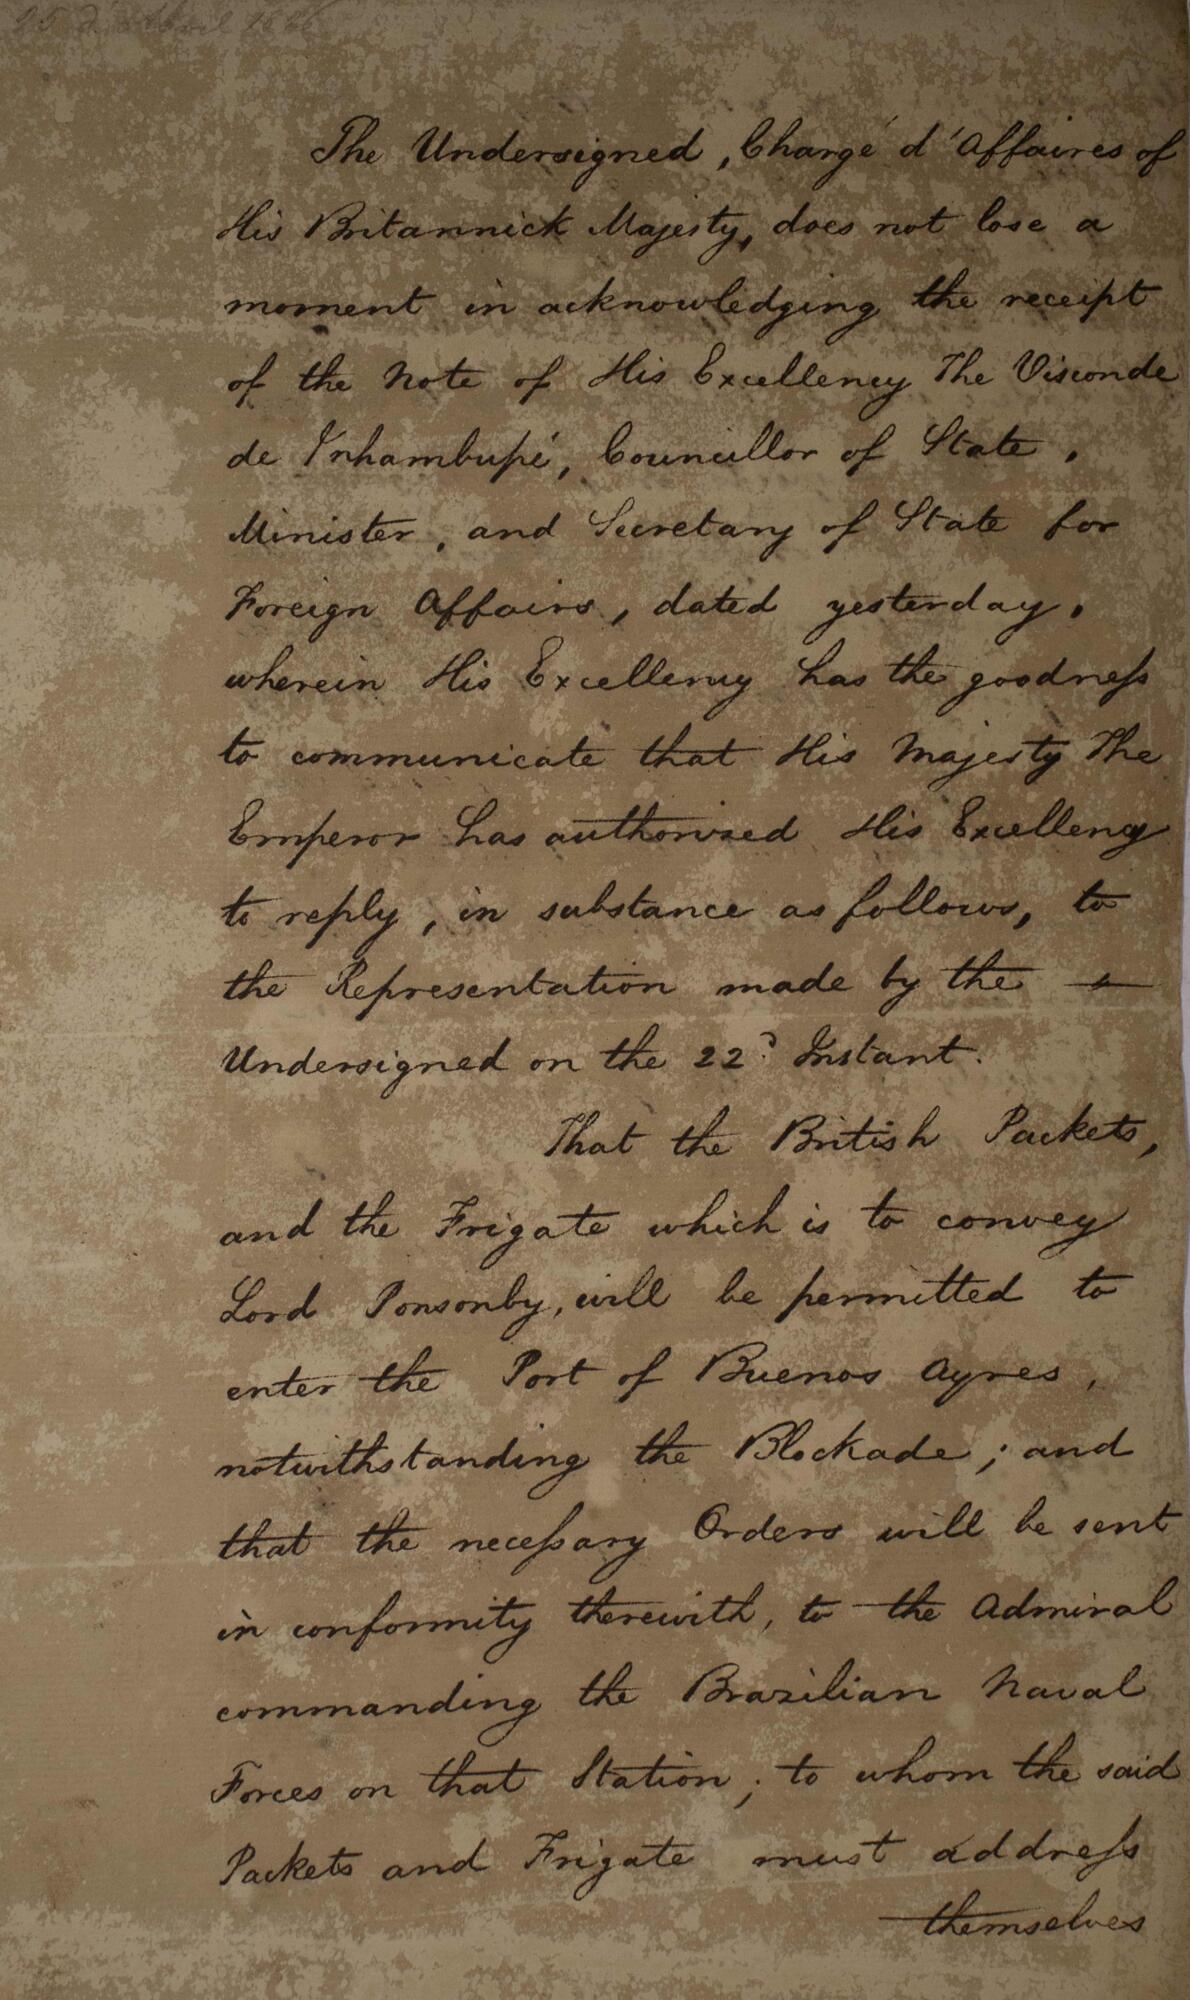 25 de Abril 1826
The Undersigned, Chargé d'Affaires of
His Britannick Majesty, does not lose a
moment in acknowledging the receipt
of the Note of His Excellency The Visconde
de Inhambupé, Councillor of State,
Minister, and Secretary of State for
Foreign Affairs, dated yesterday,
wherein His Excellency has the goodneſs
to communicate that His Majesty The
Emperor has authorized His Excellency
to reply, in substance as follows, to
the Representation made by the
Undersigned on the 22d Instant.
That the British Packets,
and the Frigate which is to convey
Lord Ponsonby, will be permitted to
enter the Port of Buenos Ayres,
notwithstanding the Blockade; and
that the neceſsary Orders will be sent
in conformity therewith, to the Admiral
commanding the Brazilian Naval
Forces on that Station; to whom the said
Packets and Frigate must addreſs
themselves